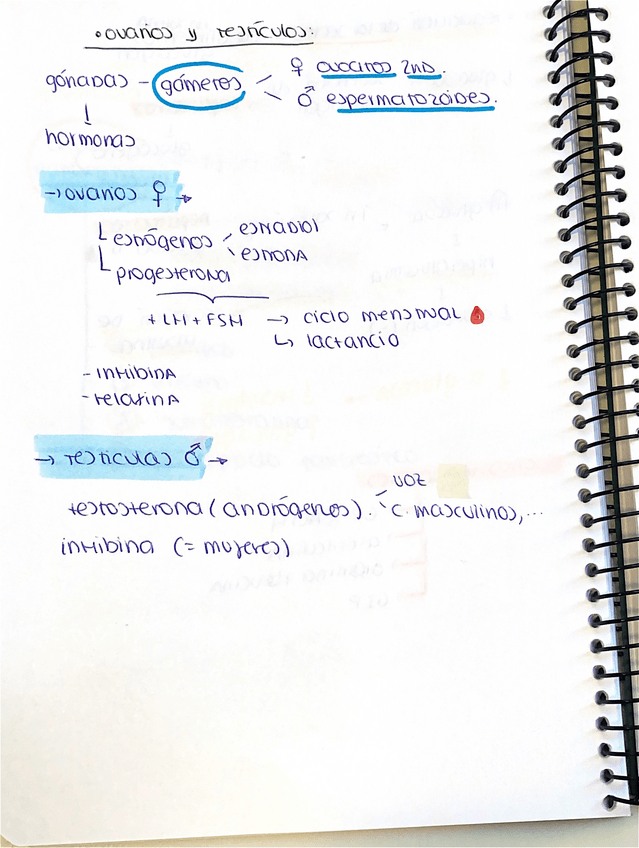 • ovarios y testículos:
gónadas - gámetos ♀ ovocitos 2nd.
♂ espermatozoides.
hormonas
→ ovarios ♀ →
estrógenos estradiol
estrona
progesterona
+ LH + FSH → ciclo menstrual
↳ lactancia
- inhibina
- relaxina
→ testiculos ♂ →
voz
testosterona (andrógenos). c. masculinos,...
inhibina (= mujeres)